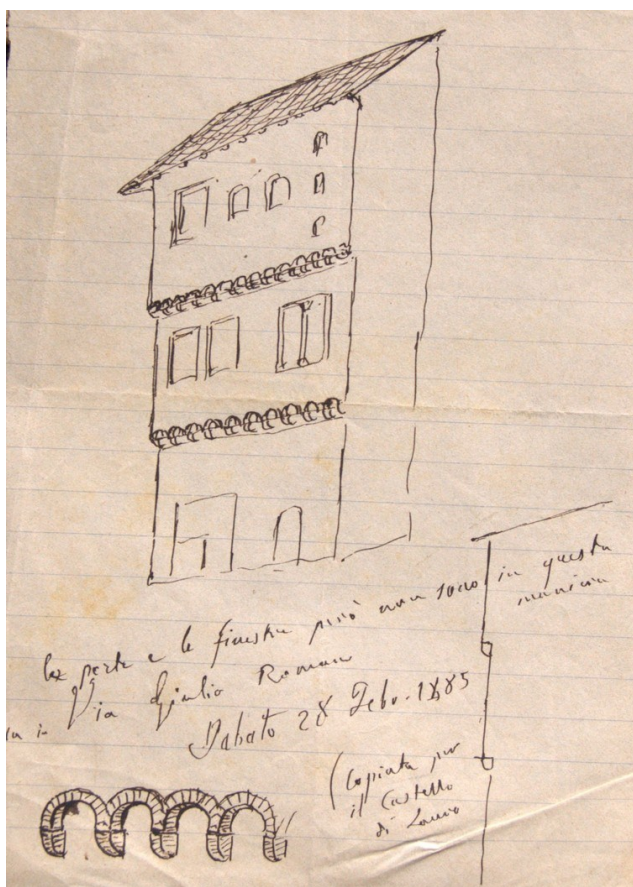 La porta e le finestre però non sono in questa
maniera
Via Giulio Romano
Sabato 28 Febr. 1885
(Copiata per
il Castello
di Lauro